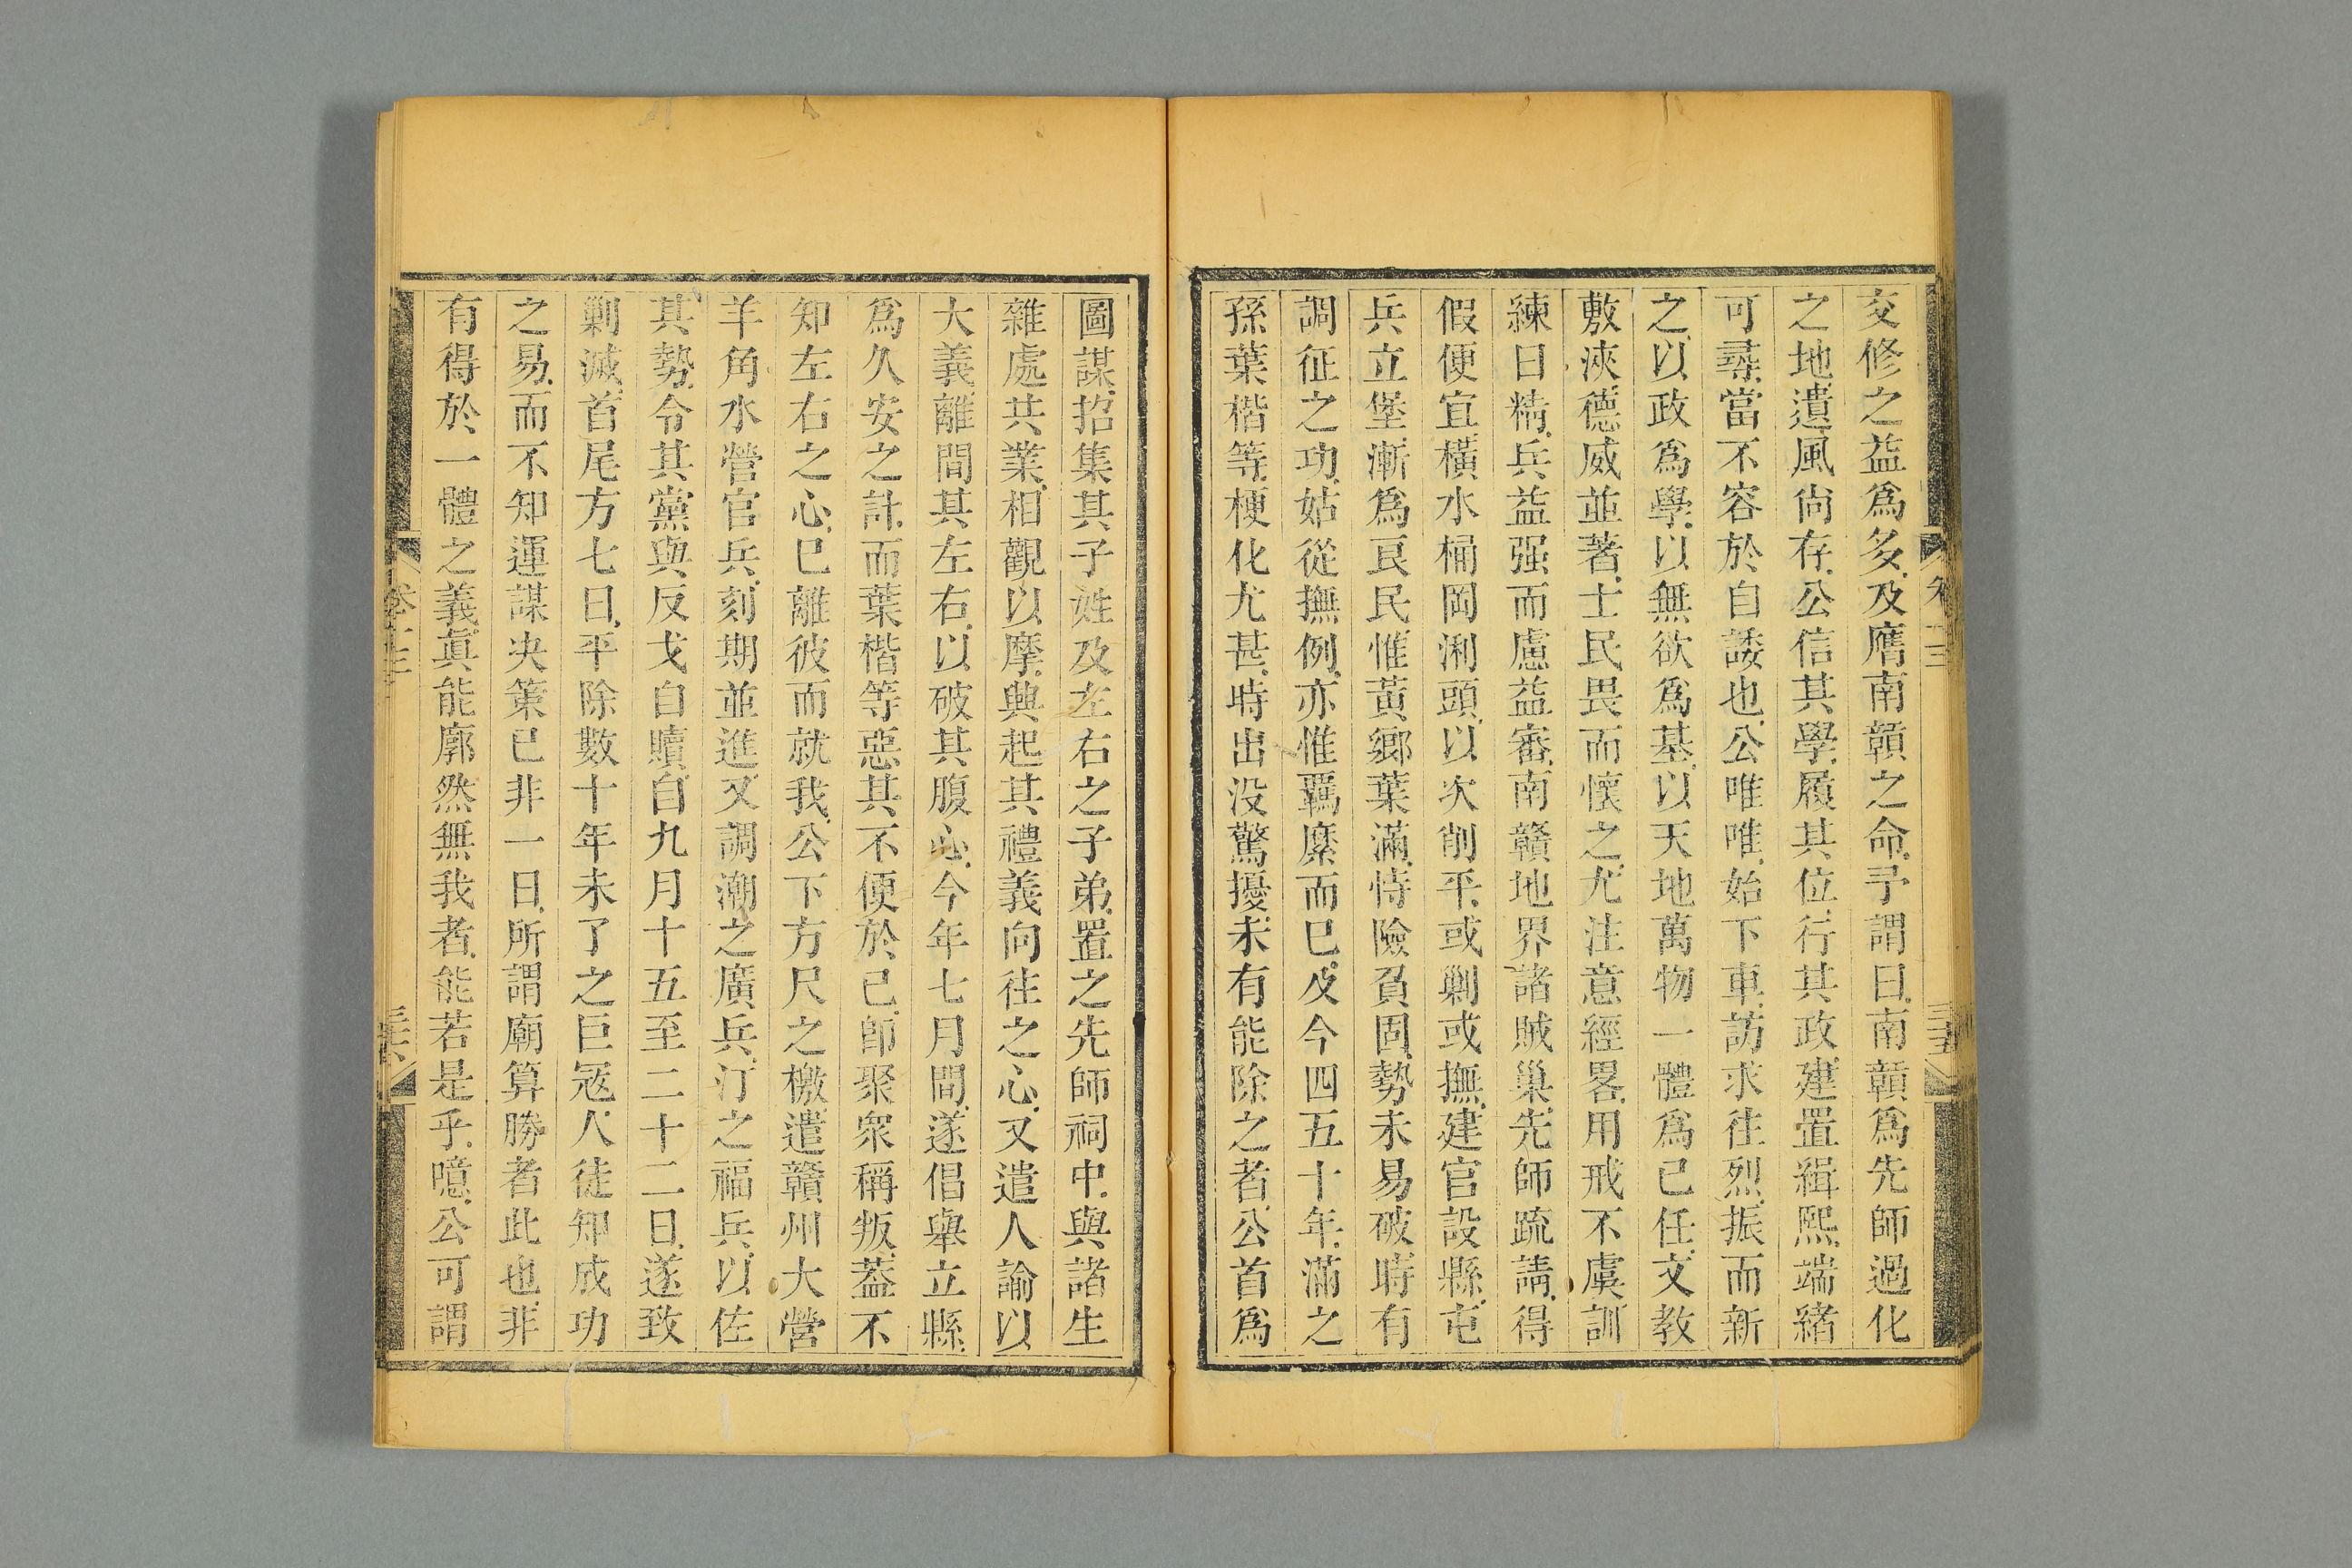 交修之益爲多及膺南贛之命予謂曰南贛爲先師過化
之地遺風尙存公信其學履其位行其政建置緝熙端緒
可尋當不容於自諉也公唯唯始下車訪求往烈振而新
之以政爲學以無欲爲基以天地萬物一體爲已任文教
敷浹德威並著士民畏而懷之尤注意經畧用戒不虞訓
練日精兵益强而慮益審南贛地界諸賊巢先師疏請得
假便宜橫水桶岡浰頭以次削平或剿或撫建官設縣屯
兵立堡漸爲良民惟黃鄉葉滿恃險負固勢未易破時有
調征之功姑從撫例亦惟羈縻而已及今四五十年滿之
孫葉楷等梗化尤甚時出没驚擾未有能除之者公首爲
圖謀招集其子姓及左右之子弟置之先師祠中與諸生
雜處共業相觀以摩興起其禮義向往之心又遣人諭以
大義離間其左右以破其腹心今年七月間遂倡舉立縣
爲久安之計而葉楷等惡其不便於已卽聚衆稱叛葢不
知左右之心已離彼而就我公下方尺之檄遣贛州大營
羊角水營官兵刻期並進又調潮之廣兵汀之福兵以佐
其勢令其黨與反戈自贖自九月十五至二十二日遂致
剿滅首尾方七日平除數十年未了之巨冦人徒知成功
之易而不知運謀决策已非一日所謂廟算勝者此也非
有得於一體之義眞能廓然無我者能若是乎噫公可謂
卷十三
三十六